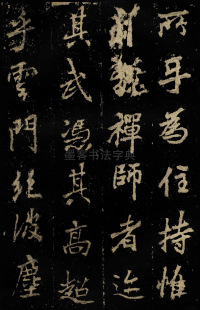 所乎為住持惟
禪師者迩
其武憑其高超
乎雲門絕彼塵
墨客书法字典